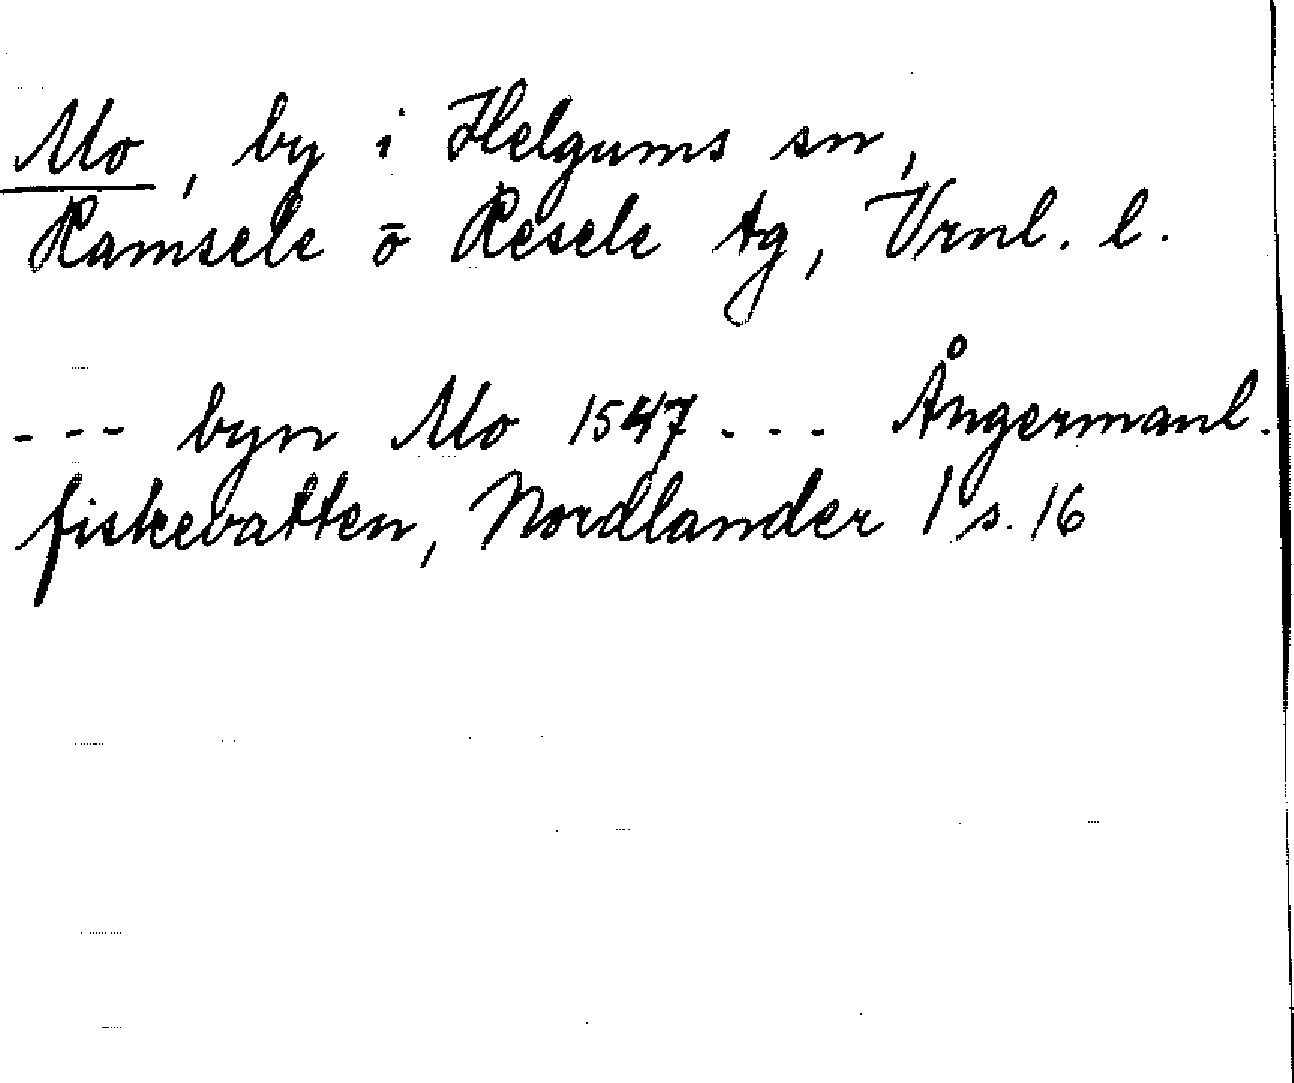 Mo, by i Helgums sn,
Ramsele ō Resele tg, Vrnl. l.
--- byn Mo 1547 --- Ångermanl.
fiskevatten, Nordlander 1 s. 16